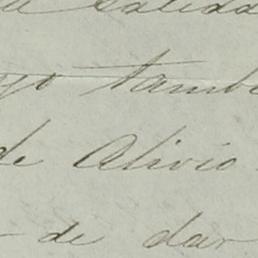 salida
tambi
de Alivio
de dar